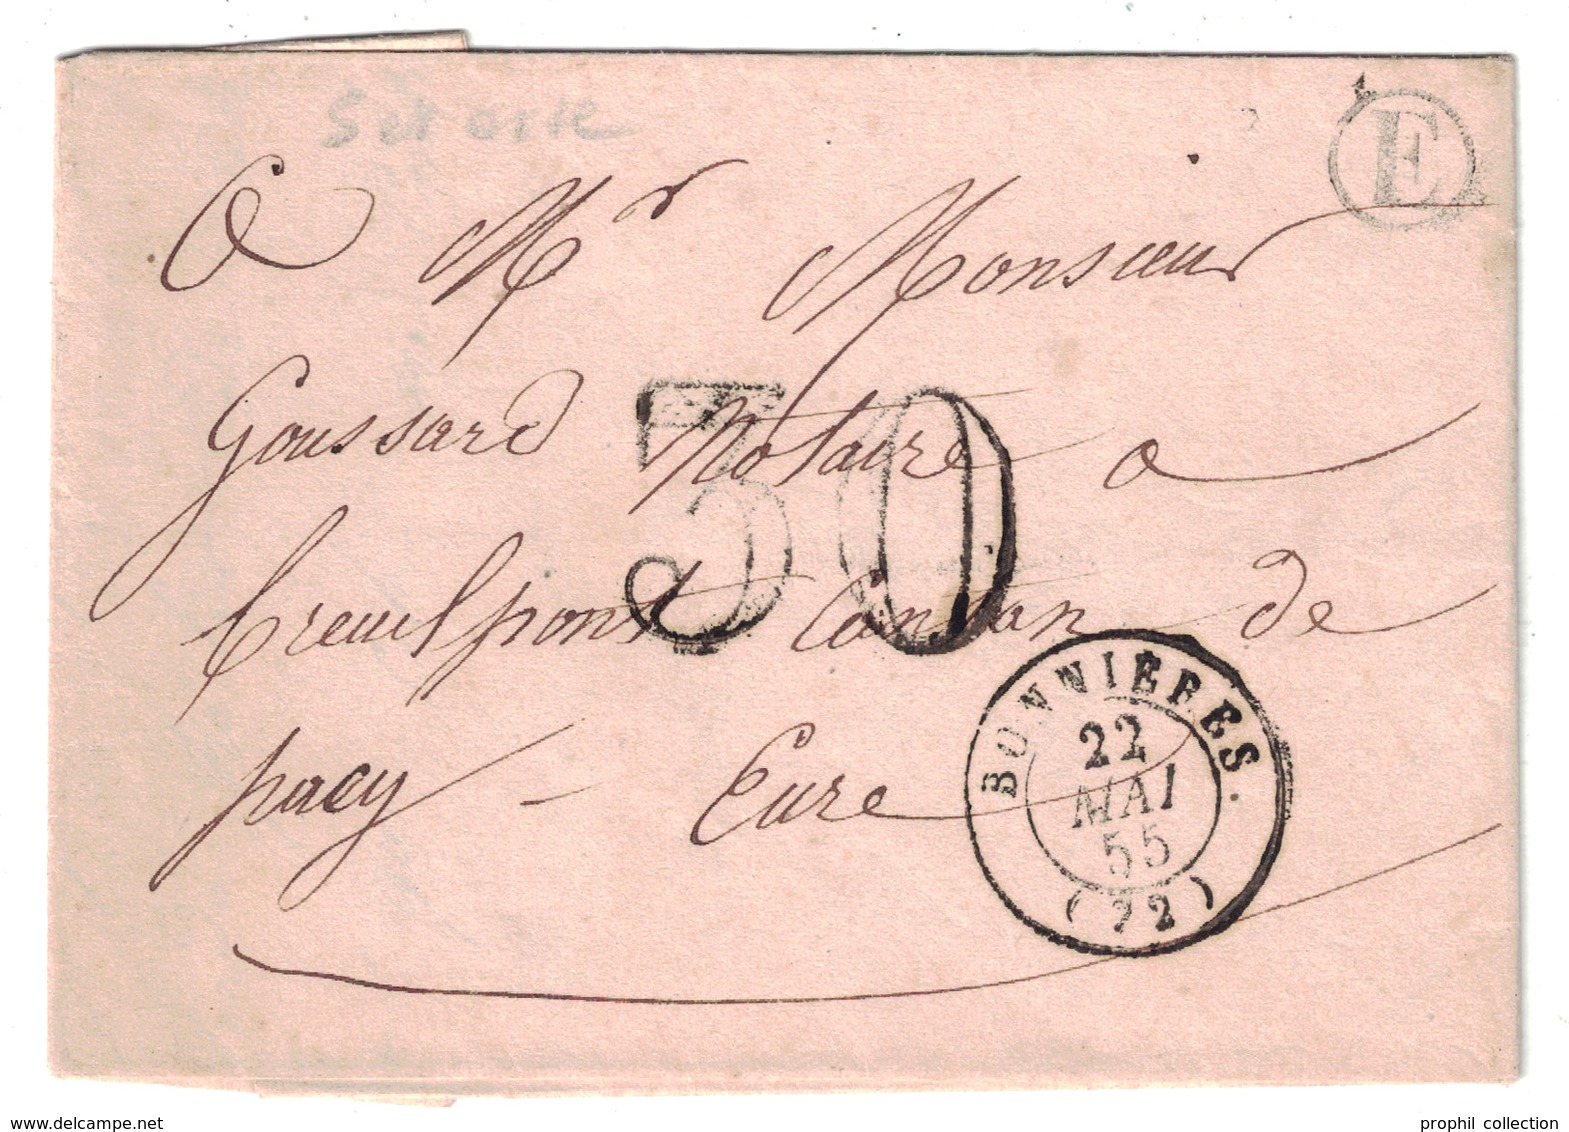 E
A Mr Monsieur
Goussard Notaire a
30
Creuilpont Canton de
pacy - Eure
BONNIÈRES.
22
MAI
55
(72)
www.delcampe.net
prophil collection